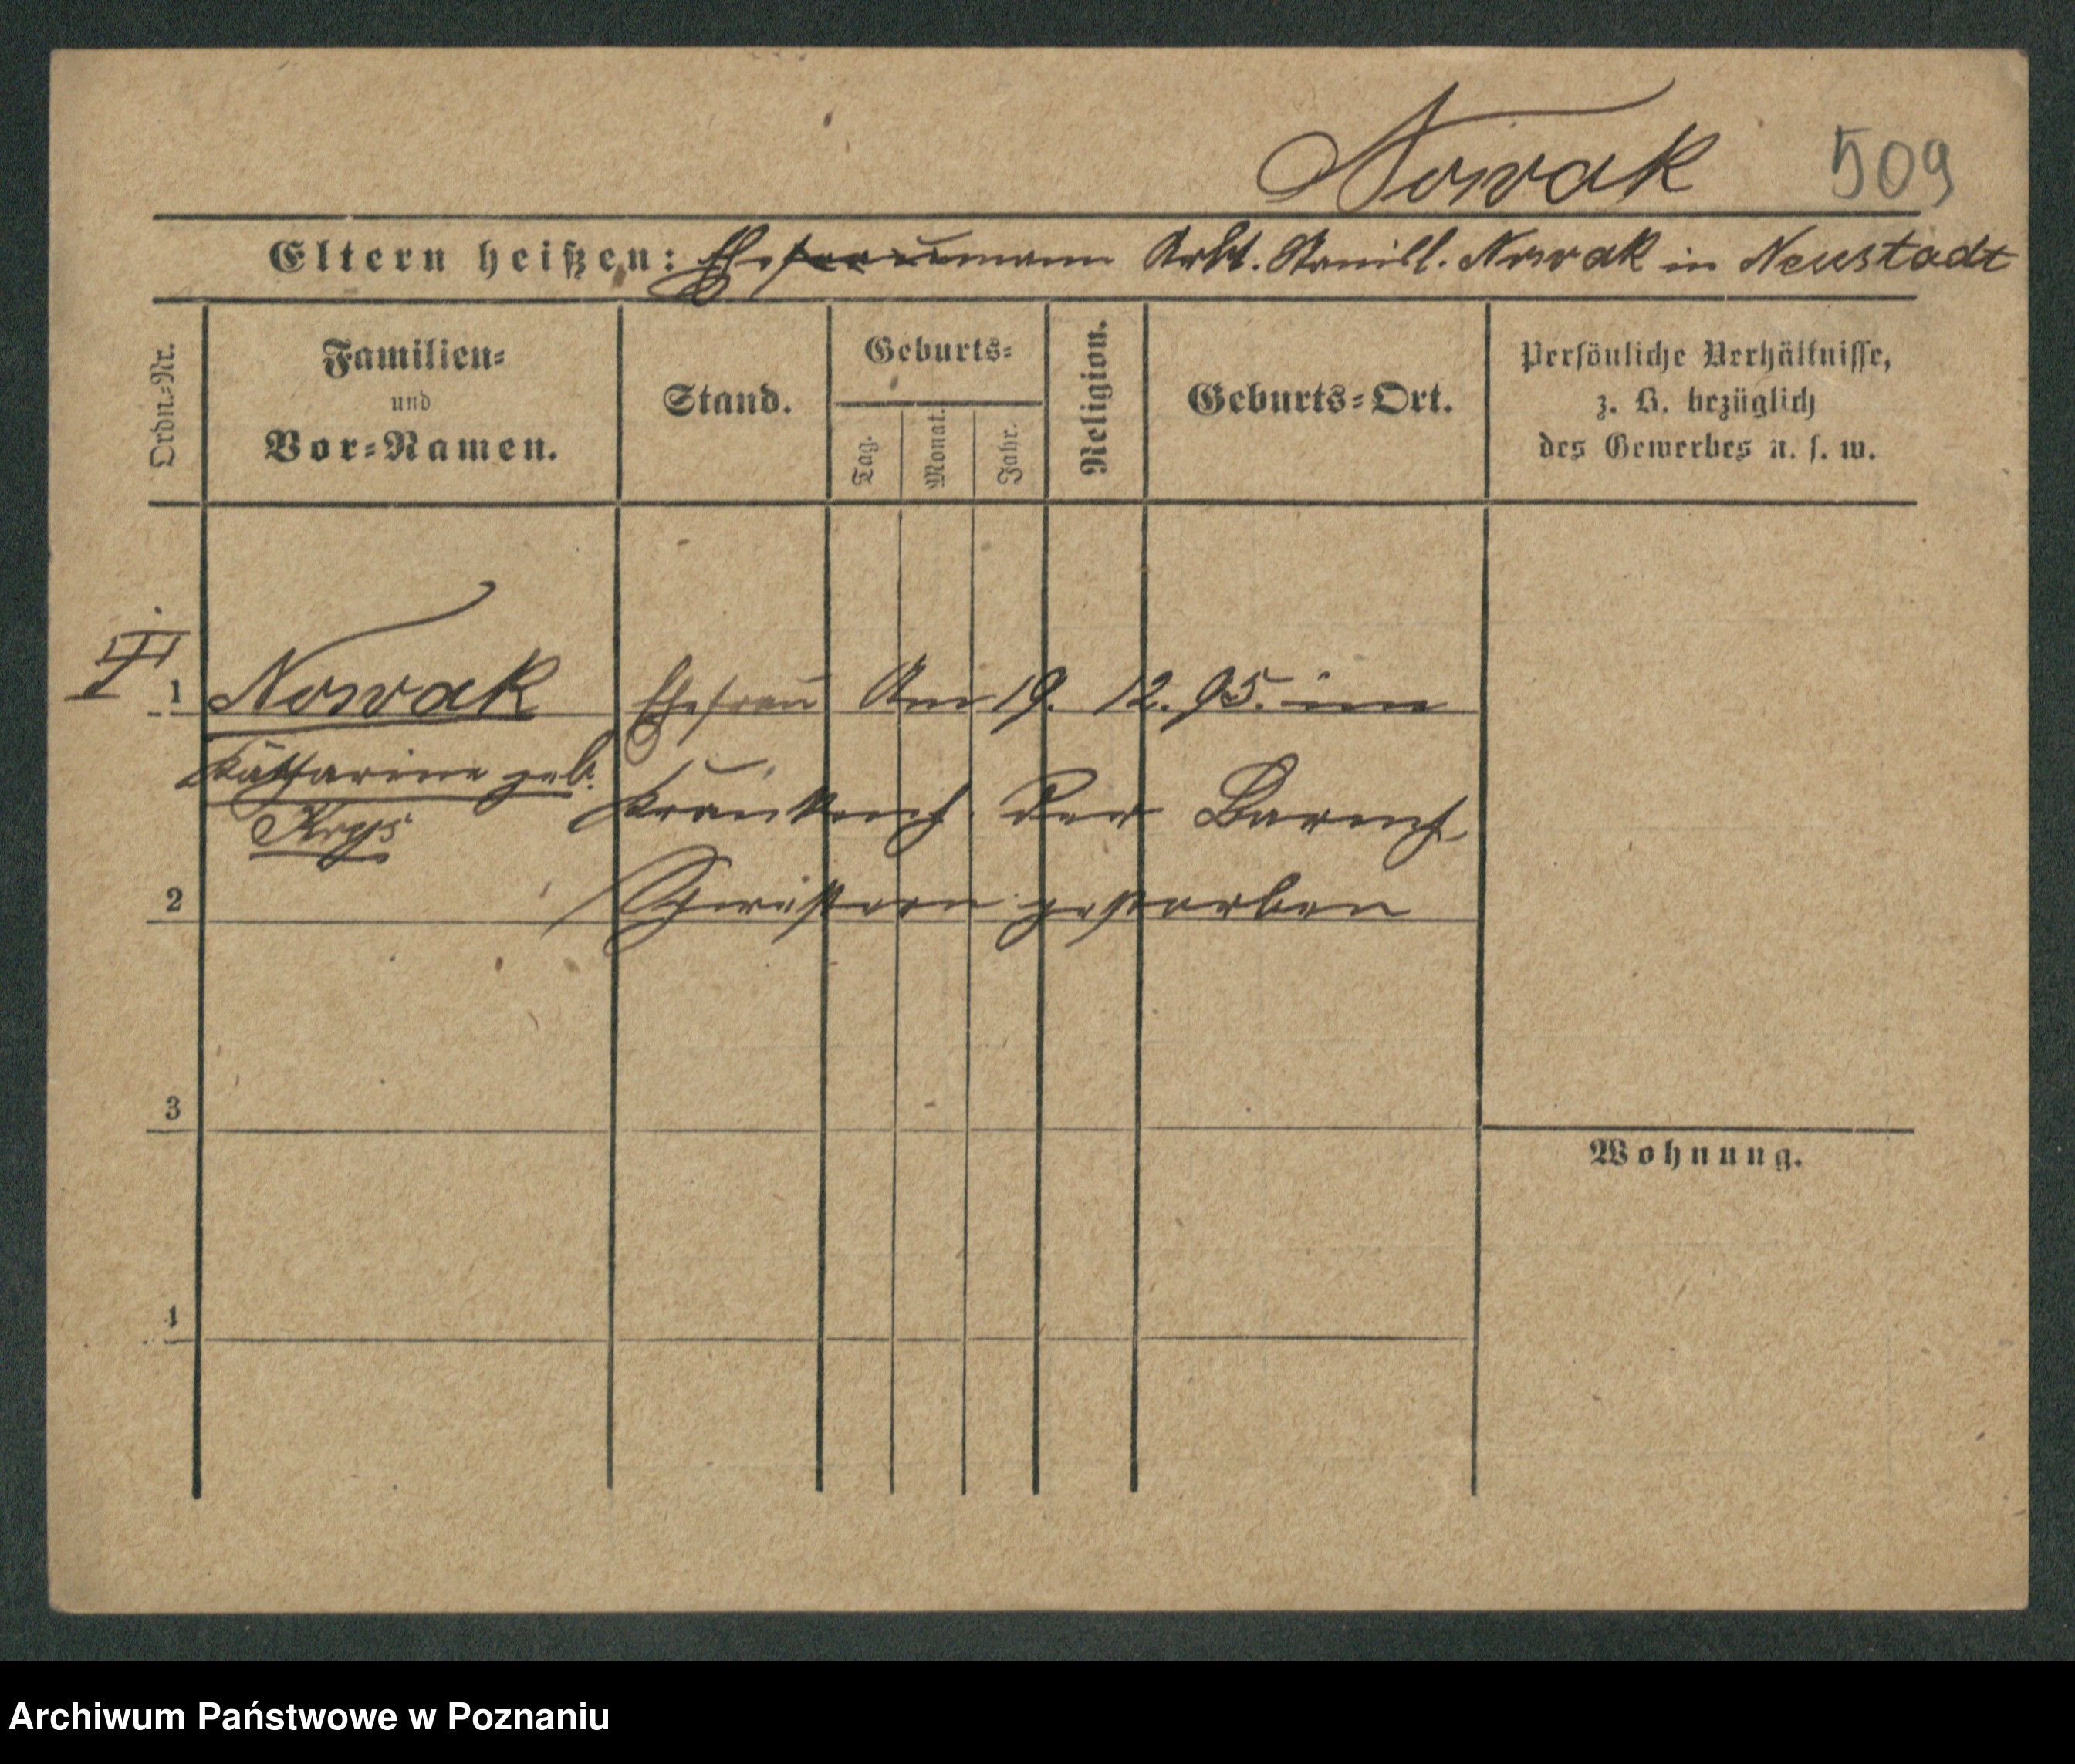 Nowak 509
Eltern heißen: Ehefraumann Arbt. Stanisl. Nowak in Neustadt
Ordn.-Nr.
Familien-
und
Vor-Namen.
Stand.
Geburts-
Tag.
Monat.
Jahr.
Religion.
Geburts-Ort.
Persönliche Verhältnisse,
z. B. bezüglich
des Gewerbes u. s. w.
1 Nowak Ehefrau Am 19. 12. 95. im
Katharine geb.
Krankenh. der Barmh.
Krys
2 Schwestern gestorben
3
Wohnung.
4
Archiwum Państwowe w Poznaniu